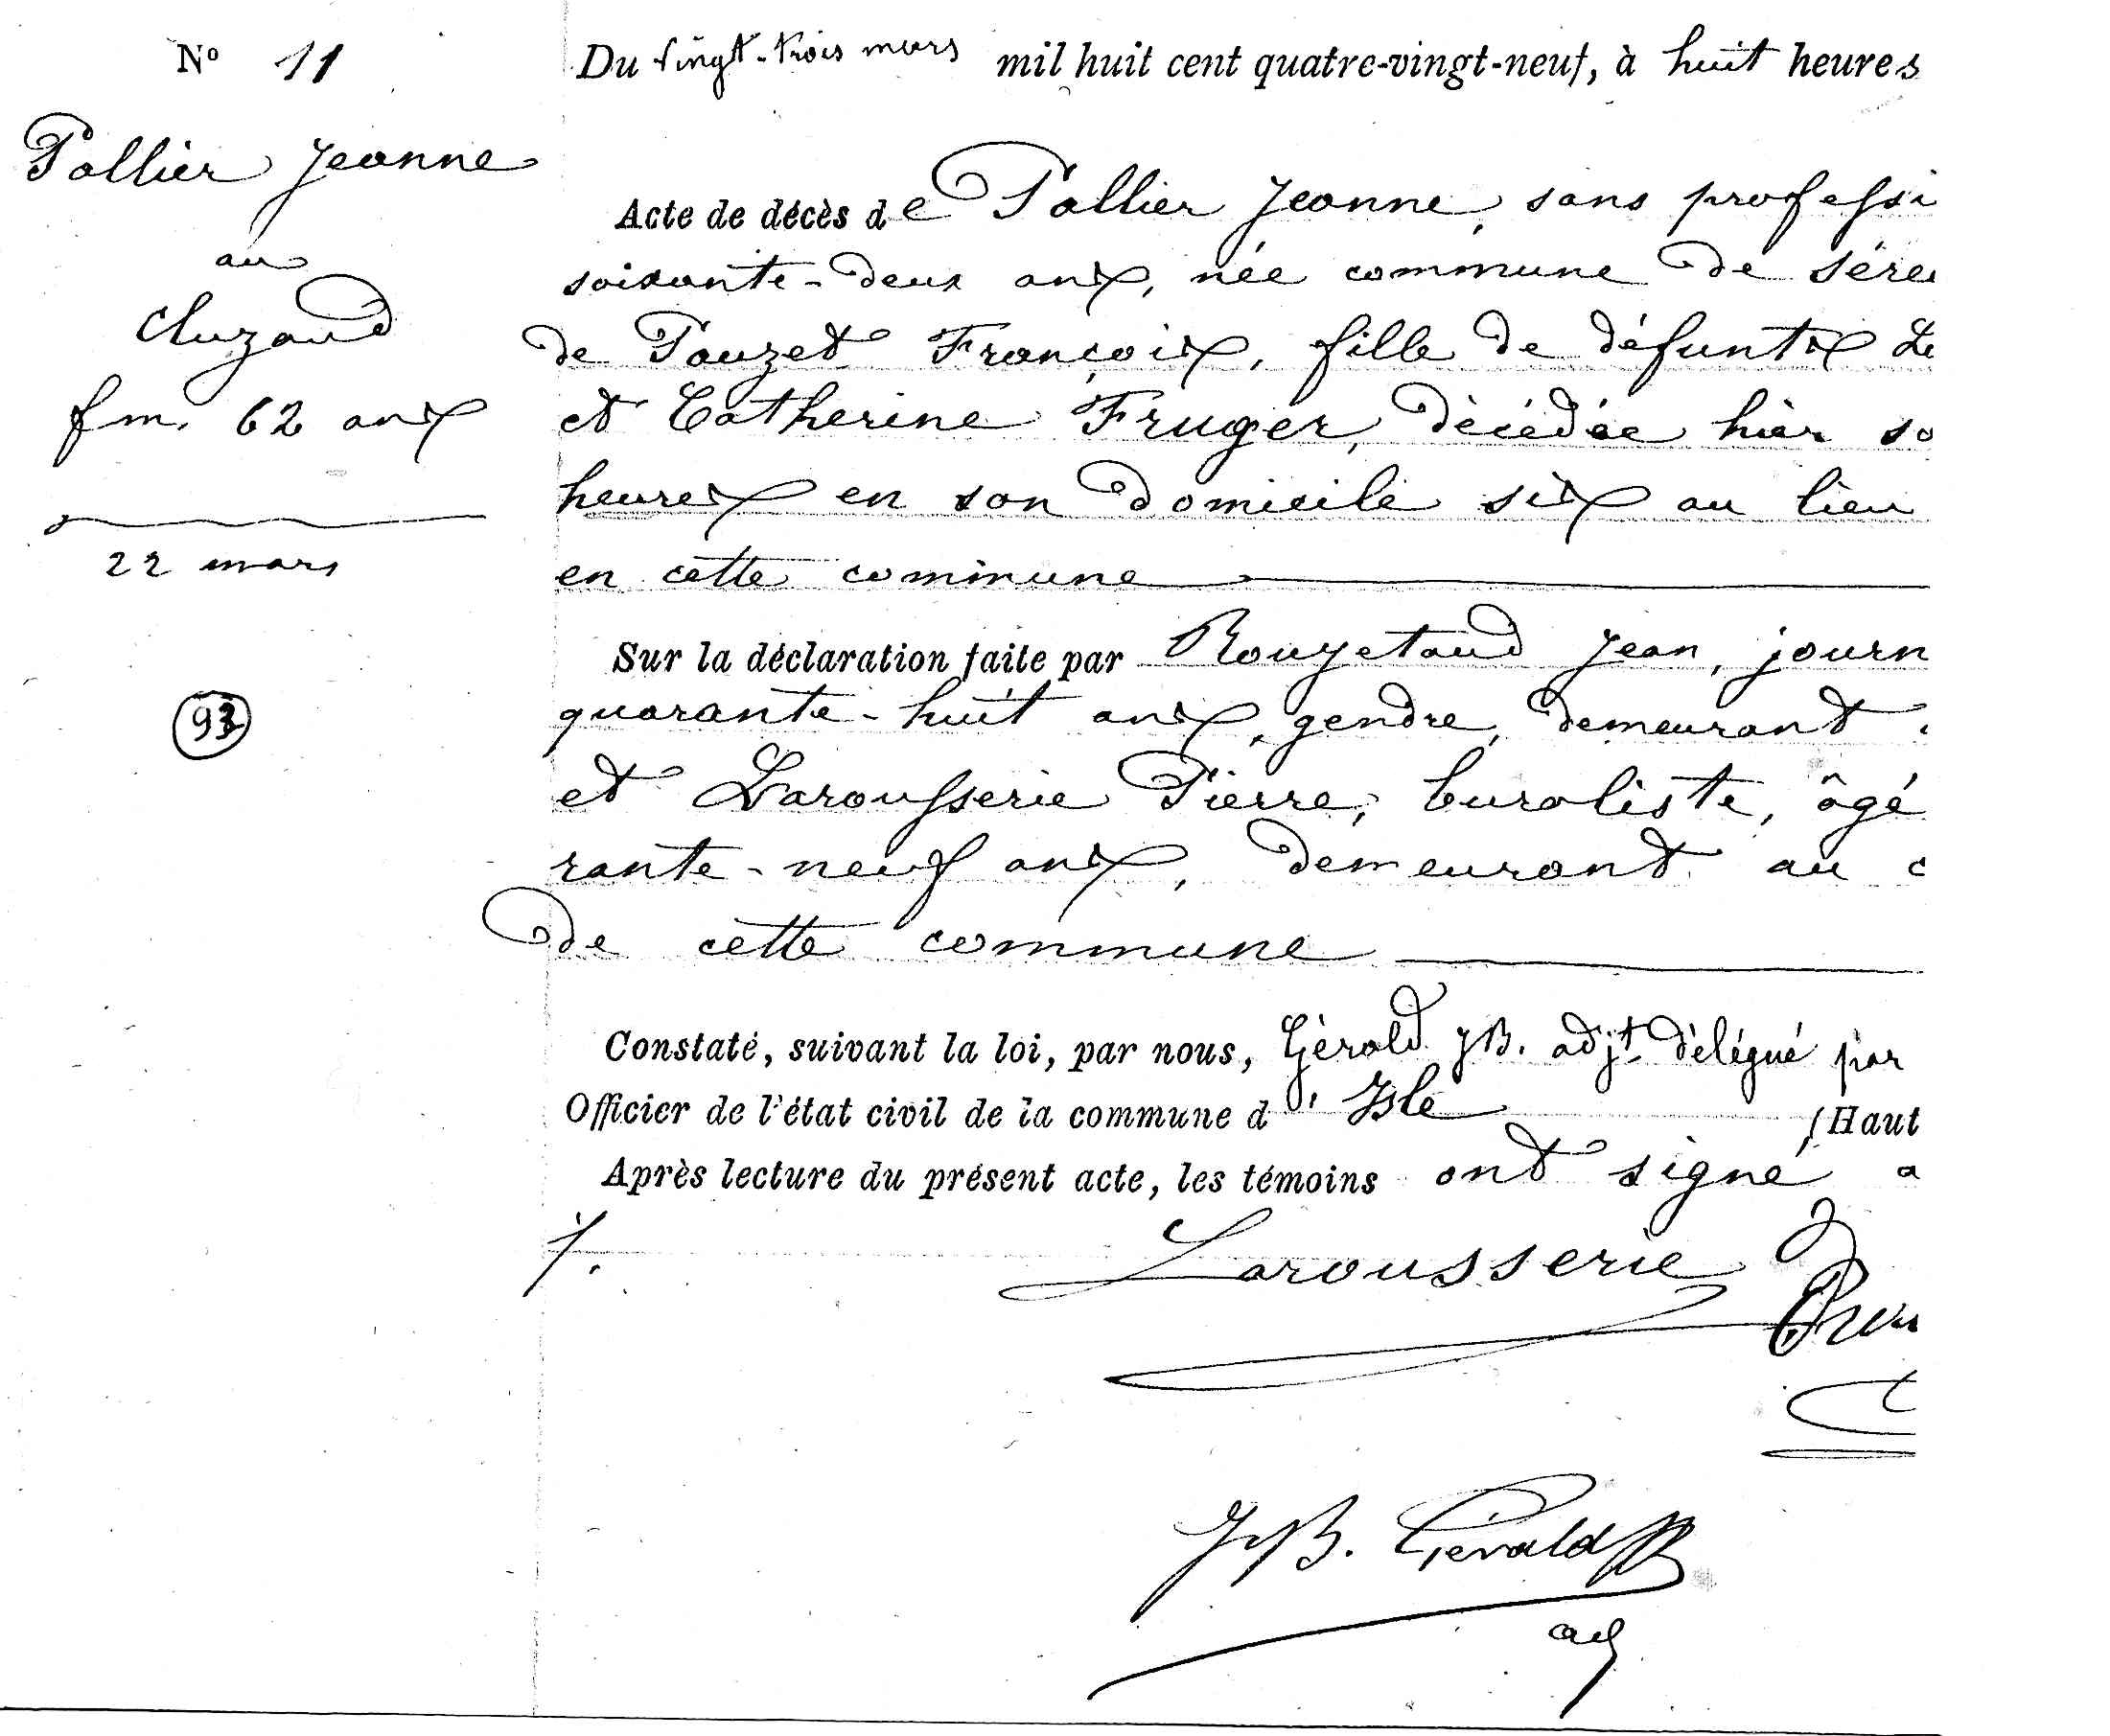 No 11
Pallier Jeanne
au
Cluzaud
fme 62 ans
22 mars
93
Du vingt-trois mars mil huit cent quatre-vingt-neuf, à huit heures
Acte de décès de Pallier Jeanne, sans professi
soixante-deux ans, née commune de Sére
de Pauzet François, fille de défunts Le
et Catherine Fruger, décédée hier so
heures en son domicile sis au lieu
en cette commune
Sur la déclaration faite par Rougetaud Jean, journ
quarante-huit ans, gendre, demeurant
et Larousserie Pierre, buraliste, âgé
rante-neuf ans, demeurant au c
de cette commune
Constaté, suivant la loi, par nous, Gérald JB. adjt délégué par
Officier de l'état civil de la commune d'Isle (Haut
Après lecture du présent acte, les témoins ont signé a
Larousserie
JB. Gérald
adj